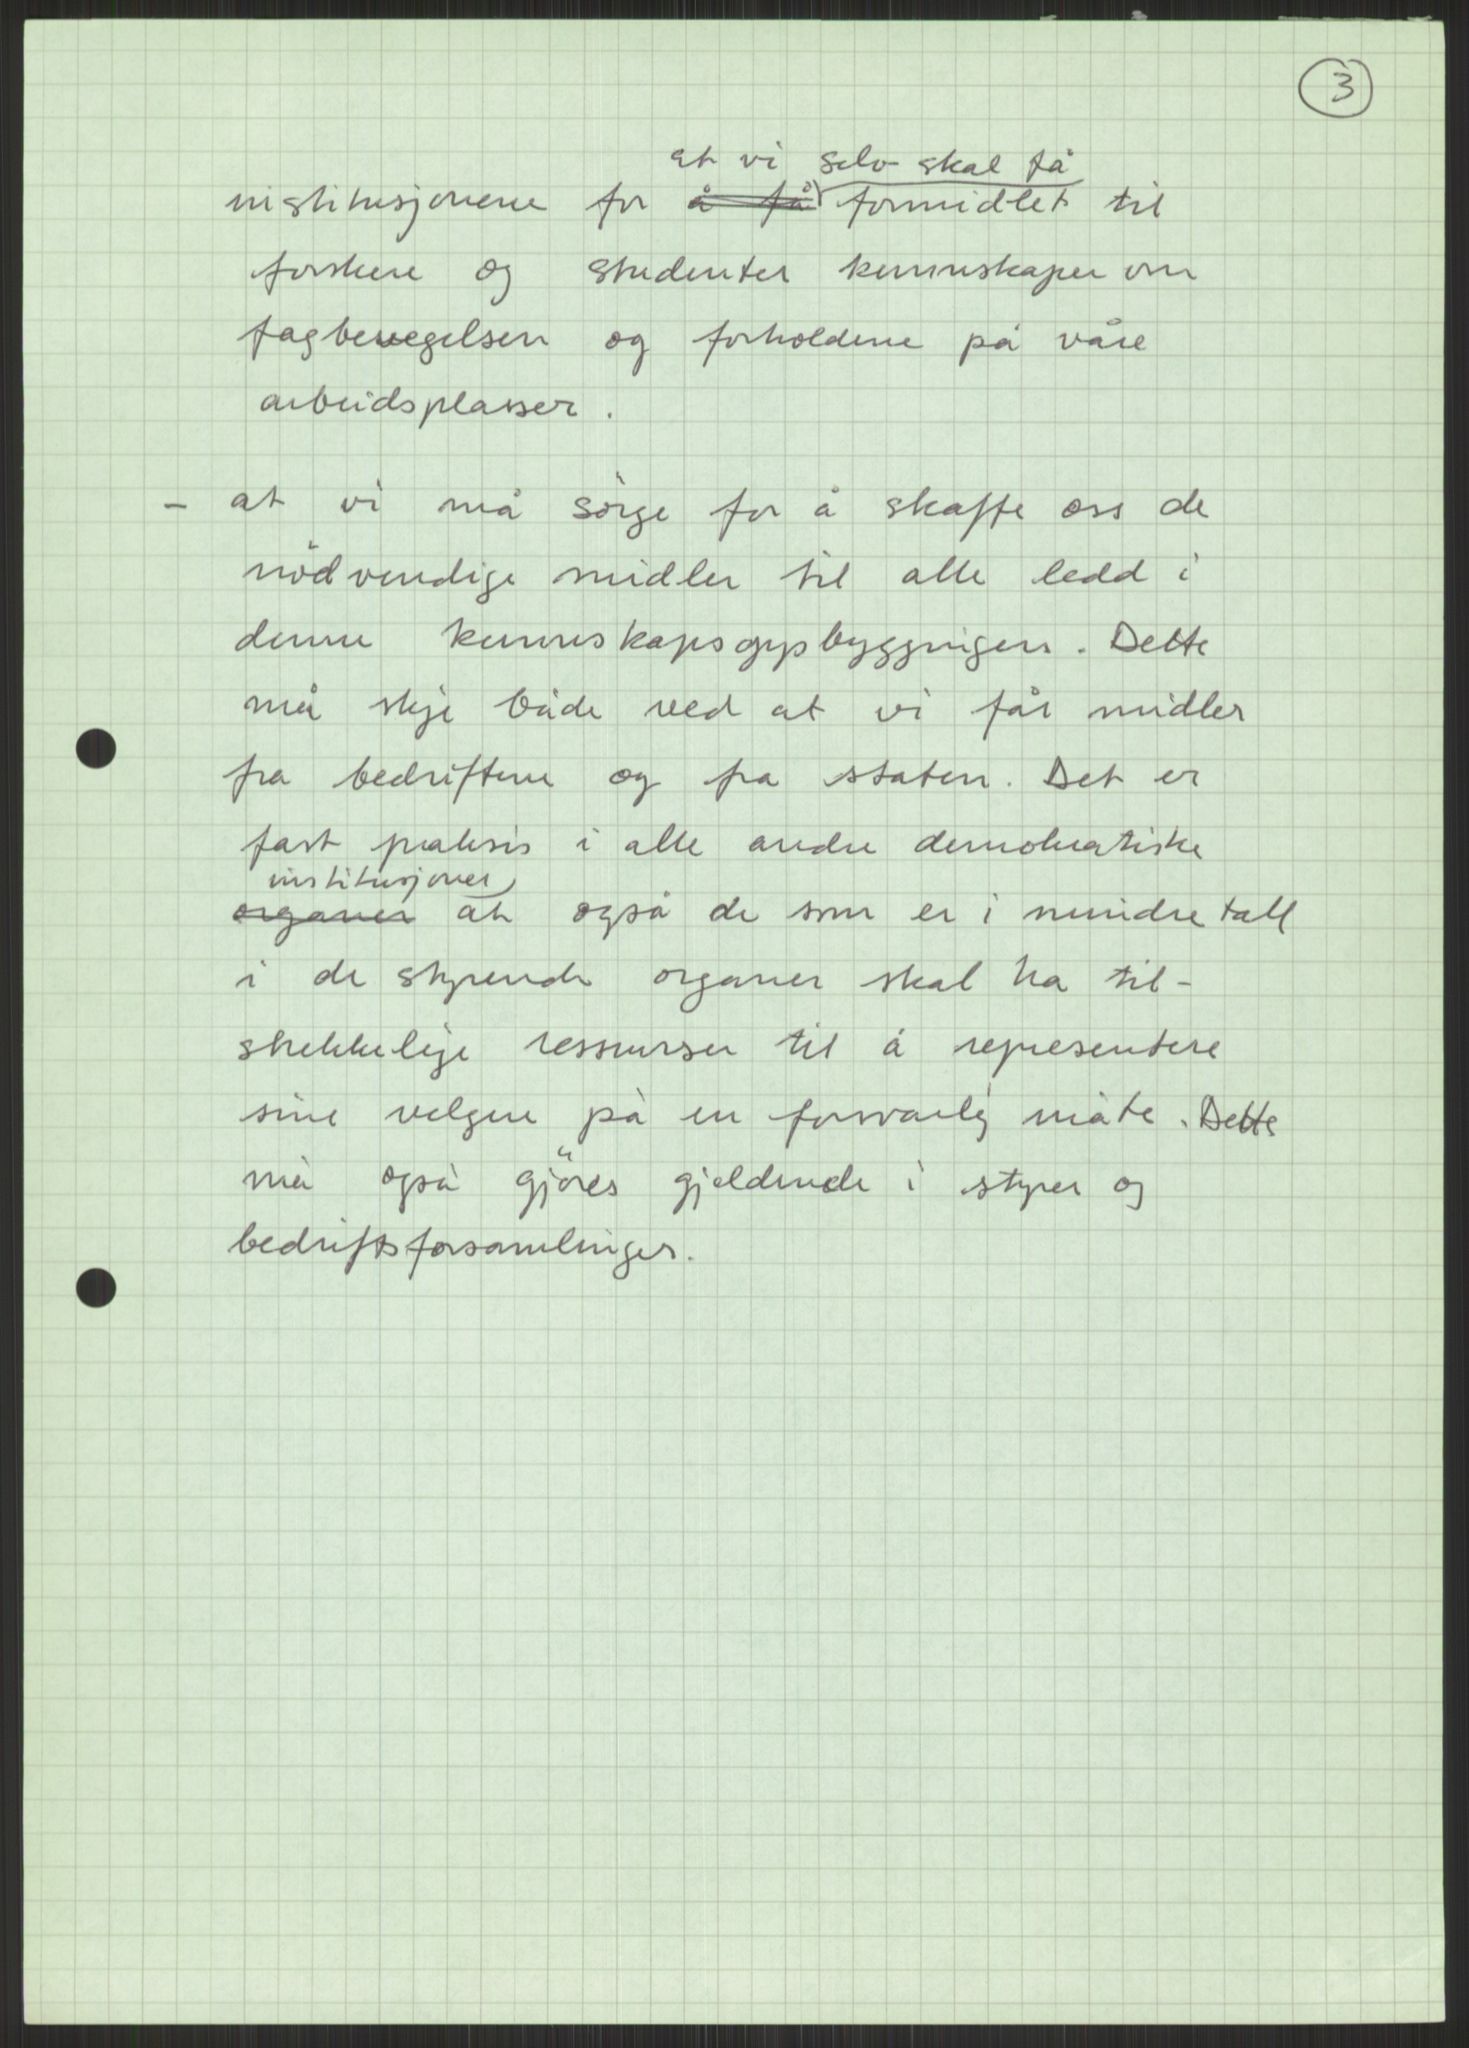 3
at vi selv skal få
institusjonene for å få formidlet til
forskere og studenter kunnskaper om
fagbevegelsen og forholdene på våre
arbeidsplasser.
- at vi må sörge for å skaffe oss de
nödvendige midler til alle ledd i
denne kunnskapsoppbyggingen. Dette
må skje både ved at vi får midler
fra bedriftene og fra staten. Det er
fast praksis i alle andre demokratiske
institusjoner
organer at også de som er i mindretall
i de styrende organer skal ha til-
strekkelige ressurser til å representere
sine velgere på en forsvarlig måte. Dette
må også gjöres gjeldende i styrer og
bedriftsforsamlinger.